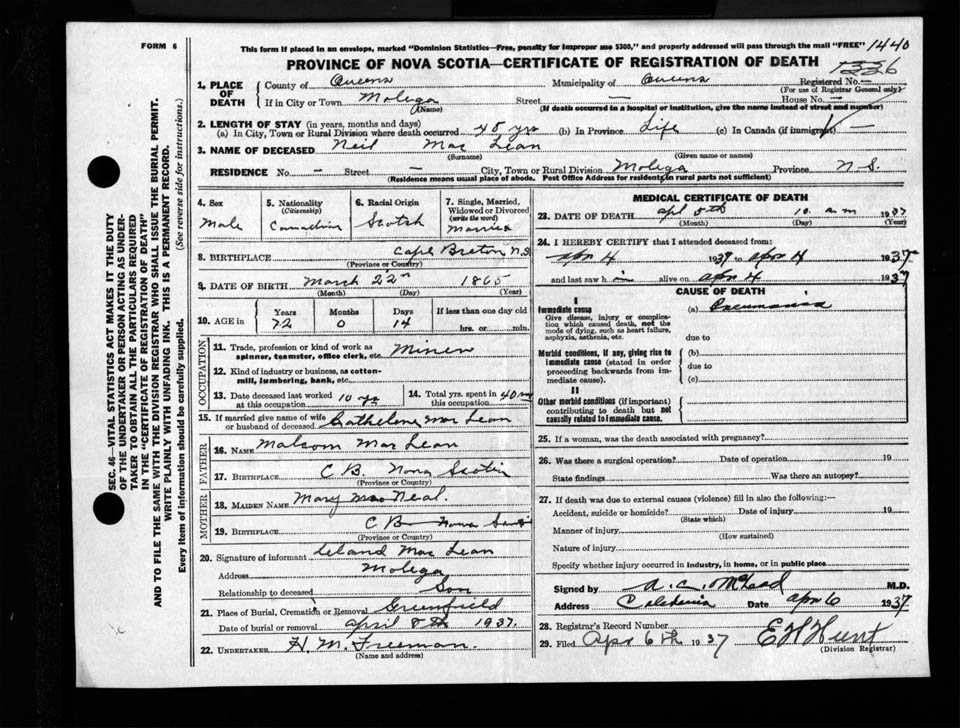 FORM 6
This form if placed in an envelope, marked "Dominion Statistics—Free, penalty for improper use $300," and properly addressed will pass through the mail "FREE" 1440
PROVINCE OF NOVA SCOTIA—CERTIFICATE OF REGISTRATION OF DEATH 1326
1. PLACE OF DEATH County of Queens Municipality of Queens Registered No. —
(For use of Registrar General only)
If in City or Town Molega Street — House No. —
(Name) (If death occurred in a hospital or institution, give the name instead of street and number)
2. LENGTH OF STAY (in years, months and days)
(a) In City, Town or Rural Division where death occurred 45 yrs (b) In Province Life (c) In Canada (if immigrant) —
3. NAME OF DECEASED Neil Mac Lean
(Surname) (Given name or names)
RESIDENCE No. — Street — City, Town or Rural Division Molega Province N.S.
(Residence means usual place of abode. Post Office Address for residents in rural parts not sufficient)
4. Sex Male
5. Nationality (Citizenship) Canadian
6. Racial Origin Scotch
7. Single, Married, Widowed or Divorced (write the word) Married
8. BIRTHPLACE Cape Breton N.S.
(Province or Country)
9. DATE OF BIRTH March 22nd 1865
(Month) (Day) (Year)
10. AGE in Years Months Days If less than one day
72 0 14 hrs. or min.
OCCUPATION
11. Trade, profession or kind of work as spinner, teamster, office clerk, etc. Miner
12. Kind of industry or business, as cotton-mill, lumbering, bank, etc.
13. Date deceased last worked at this occupation 10 yrs
14. Total yrs. spent in this occupation 40
15. If married give name of wife or husband of deceased Mac Lean
FATHER
16. NAME Malcom Mac Lean
17. BIRTHPLACE C B. Nova Scotia
(Province or Country)
MOTHER
18. MAIDEN NAME Mary MacNeal.
19. BIRTHPLACE C B Nova
(Province or Country)
20. Signature of informant Leland Mac Lean
Address Molega
Relationship to deceased Son
21. Place of Burial, Cremation or Removal Greenfield
Date of burial or removal April 8th 1937.
22. UNDERTAKER H. M. Freeman.
(Name and address)
MEDICAL CERTIFICATE OF DEATH
23. DATE OF DEATH Apl 5th 10. a m 1937
(Month) (Day) (Year)
24. I HEREBY CERTIFY that I attended deceased from:
Apr 4 1937 to Apr 4 1937
and last saw h im alive on Apr 4 1937
CAUSE OF DEATH
I
Immediate cause (a) Pneumonia
Give disease, injury or complication which caused death, not the mode of dying, such as heart failure, asphyxia, asthenia, etc.
due to
Morbid conditions, if any, giving rise to immediate cause (stated in order proceeding backwards from immediate cause).
(b)
due to
(c)
II
Other morbid conditions (if important) contributing to death but not causally related to immediate cause.
25. If a woman, was the death associated with pregnancy?
26. Was there a surgical operation? Date of operation 19
State findings Was there an autopsy?
27. If death was due to external causes (violence) fill in also the following:—
Accident, suicide or homicide? Date of injury 19
(State which)
Manner of injury
(How sustained)
Nature of injury
Specify whether injury occurred in industry, in home, or in public place
Signed by A. C. McLeod M.D.
Address Caledonia Date Apr 6 1937.
28. Registrar's Record Number
29. Filed Apr 6th 1937 E H Hunt
(Division Registrar)
SEC. 46—VITAL STATISTICS ACT MAKES IT THE DUTY
OF THE UNDERTAKER OR PERSON ACTING AS UNDER-
TAKER TO OBTAIN ALL THE PARTICULARS REQUIRED
IN THE "CERTIFICATE OF REGISTRATION OF DEATH"
AND TO FILE THE SAME WITH THE DIVISION REGISTRAR WHO SHALL ISSUE THE BURIAL PERMIT.
WRITE PLAINLY WITH UNFADING INK. THIS IS A PERMANENT RECORD.
Every item of information should be carefully supplied. (See reverse side for instructions.)